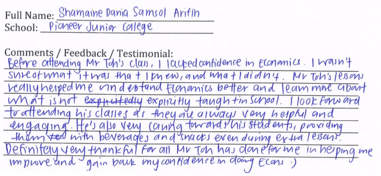 Full Name: Shamaine Dania Samsol Arifin
School: Pioneer Junior College
Comments / Feedback / Testimonial:
Before attending Mr Toh's class, I lacked confidence in Economics. I wasn't
sure what it was that I knew, and what I didn't. Mr Toh's lesson
really helped me understand Economics better and learn more about
what is not explicitly taught in school. I look forward
to attending his classes as they are always very helpful and
engaging. He's also very caring towards his students, providing
them with beverages and snacks even during extra lesson!
Definitely very thankful for all Mr Toh has done for me in helping me
improve and gain back my confidence in doing Econs :)